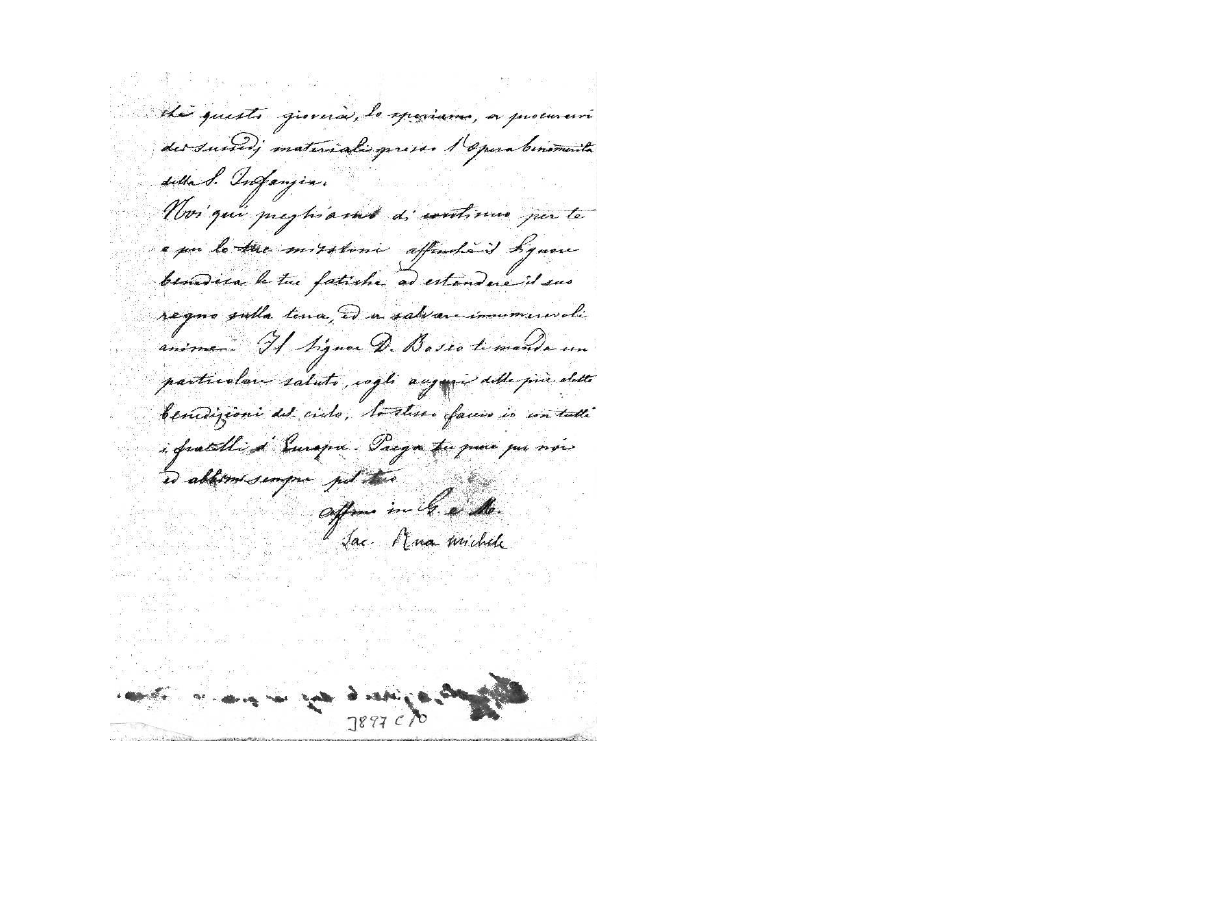 chè questo gioverà, lo speriamo, a procurarvi
dei sussidj materiali presso l'Opera benemerita
della S. Infanzia.
Noi qui preghiamo di continuo per te
e per le tue missioni affinchè il Signore
benedica le tue fatiche ad estendere il suo
regno sulla terra, ed a salvare innumerevoli
anime. Il Signor D. Bosco ti manda un
particolare saluto, cogli auguri delle più elette
benedizioni del cielo, lo stesso faccio io con tutti
i fratelli d'Europa. Prega tu pure per noi
ed abbimi sempre pel tuo
affmo in G. e M.
Sac. Rua Michele
3897 C10